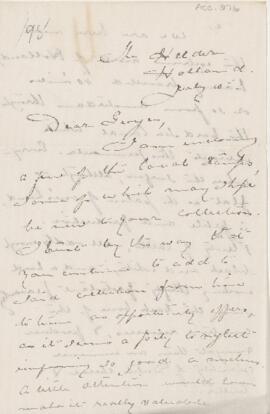 The Helder
Holland.
Dear George,
I am enclosing
a few of the local stamps,
some of which may I hope
be new to your collection.
by the way
you continue to add to
said collection from time
to time as opportunity offers,
as it seems a pity to neglect
improving so good a
a little attention would soon
make it really valuable